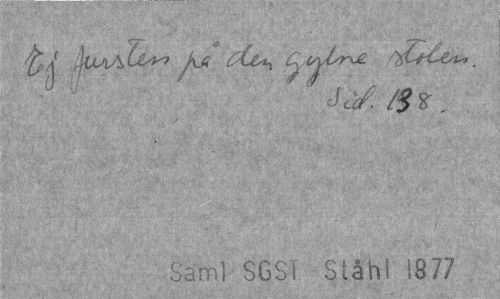 Ej fursten på den gylne stolen.
Sid. 138.
Saml SGST Ståhl 1877